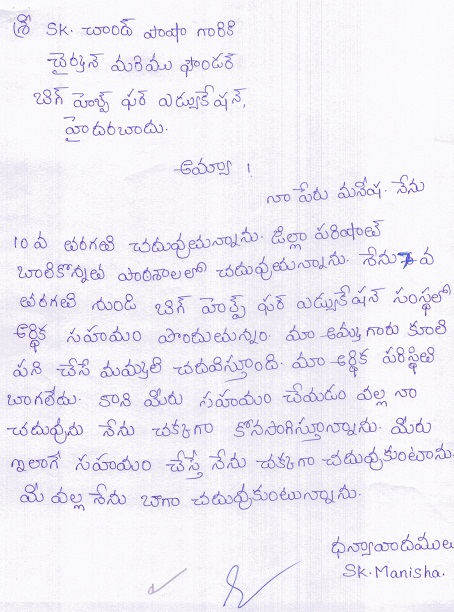 శ్రీ SK. చాంద్ పాషా గారికి
చైర్మన్ మరియు ఫౌండర్
బిగ్ హెల్ప్ ఫర్ ఎడ్యుకేషన్,
హైదరబాదు.
అమ్మా !
నా పేరు మనీష. నేను
10 వ తరగతి చదువుతున్నాను. జిల్లా పరిషత్
బాలికోన్నత పాఠశాలలో చదువుతున్నాను. నేను 7 వ
తరగతి నుండి బిగ్ హెల్ప్ ఫర్ ఎడ్యుకేషన్ సంస్థలో
ఆర్థిక సహయం పొందుతున్నం. మా అమ్మ గారు కూలి
పని చేసి మమ్మలి చదివిస్తూంది. మా ఆర్థిక పరిస్థితి
బాగలేదు. కాని మీరు సహయం చేయడం వల్ల నా
చదువును నేను చక్కగా కొనసాగిస్తూన్నాను. మీరు
ఇలాగే సహయం చేస్తే నేను చక్కగా చదువుకుంటాను.
మీ వల్ల నేను బాగా చదువుకుంటున్నాను.
ధన్యావాదములు
SK. Manisha.